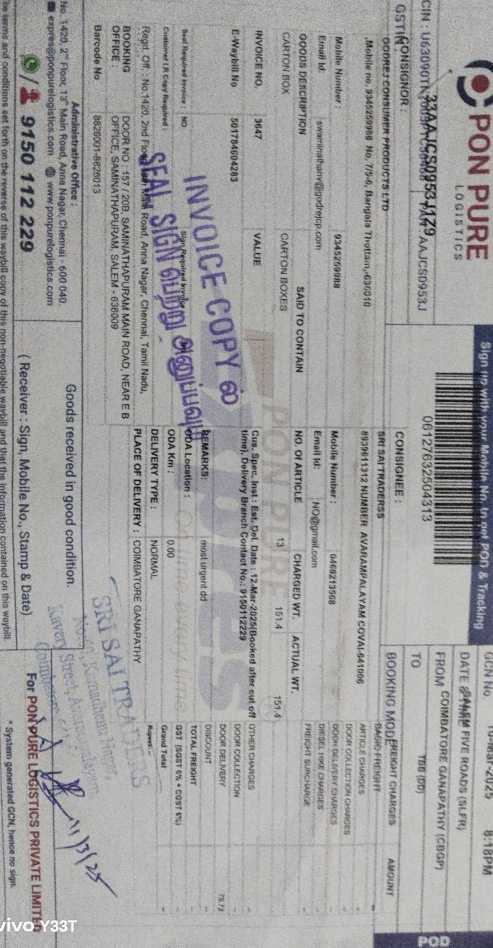 PON PURE
LOGISTICS
CIN : U63090TN
33AAJCS0953J1Z9
PAN: AAJCS0953J
GSTIN
Sign up with your Mobile No. to get POD & Tracking
06127632504313
GCN No.
10-Mar-2025 8:18PM
DATE & TIME
SALEM FIVE ROADS (SLFR)
FROM COIMBATORE GANAPATHY (CBGP)
TO
TBB (DD)
BOOKING MODE
POD
CONSIGNOR :
GODREJ CONSUMER PRODUCTS LTD
,Mobile no. 9345269988 No. 7/5-6, Bangala Thottam,-636010
Mobile Number : 9345269988
Email Id: swaminathanm@godrejcp.com
CONSIGNEE :
SRI SAI TRADERSS
8939611312 NUMBER AVARAMPALAYAM COVAI-641006
Mobile Number : 0469213508
Email Id: NO@gmail.com
FREIGHT CHARGES AMOUNT
BASIC FREIGHT
ARTICLE CHARGES
DOOR COLLECTION CHARGES
DOOR DELIVERY CHARGES
DIESEL HIKE CHARGES
FREIGHT SURCHARGE
OTHER CHARGES
DOOR COLLECTION
DOOR DELIVERY 75.73
DISCOUNT
TOTAL FREIGHT
GST (SGST 6% + CGST 6%)
Grand Total
Rupees:
GOODS DESCRIPTION SAID TO CONTAIN NO. OF ARTICLE CHARGED WT. ACTUAL WT.
CARTON BOX CARTON BOXES 13 151.4 151.4
INVOICE NO. 3647 VALUE
E-Waybill No 501784604283
Cus. Spec. Inst : Est. Del. Date : 12-Mar-2025(Booked after cut off
time), Delivery Branch Contact No.: 9150112229
REMARKS: most urgent dd
Seal Required Invoice : NO
Sign Required Invoice
Customer LR Copy Required
ODA Location :
ODA Km : 0.00
DELIVERY TYPE : NORMAL
PLACE OF DELIVERY : COIMBATORE GANAPATHY
INVOICE COPY ல்
SEAL SIGN பெற்று அனுப்பவும்
Regd. Off : No.1420, 2nd Floor, Main Road, Anna Nagar, Chennai, Tamil Nadu,
BOOKING OFFICE :
DOOR NO :157 / 20B, SAMINATHAPURAM MAIN ROAD, NEAR E B
OFFICE, SAMINATHAPURAM, SALEM - 636009
Barcode No 8626001-8626013
Administrative Office :
No. 1420, 2nd Floor, 13th Main Road, Anna Nagar, Chennai - 600 040.
expres@ponpurelogistics.com www.ponpurelogistics.com
9150 112 229
Goods received in good condition.
( Receiver : Sign, Mobile No., Stamp & Date)
SRI SAI TRADERS
11/3/25
For PON PURE LOGISTICS PRIVATE LIMITED
* System generated GCN, hence no sign.
terms and conditions set forth on the reverse of this waybill copy of this non-negotiable waybill and that the information contained on this waybill
vivo Y33T